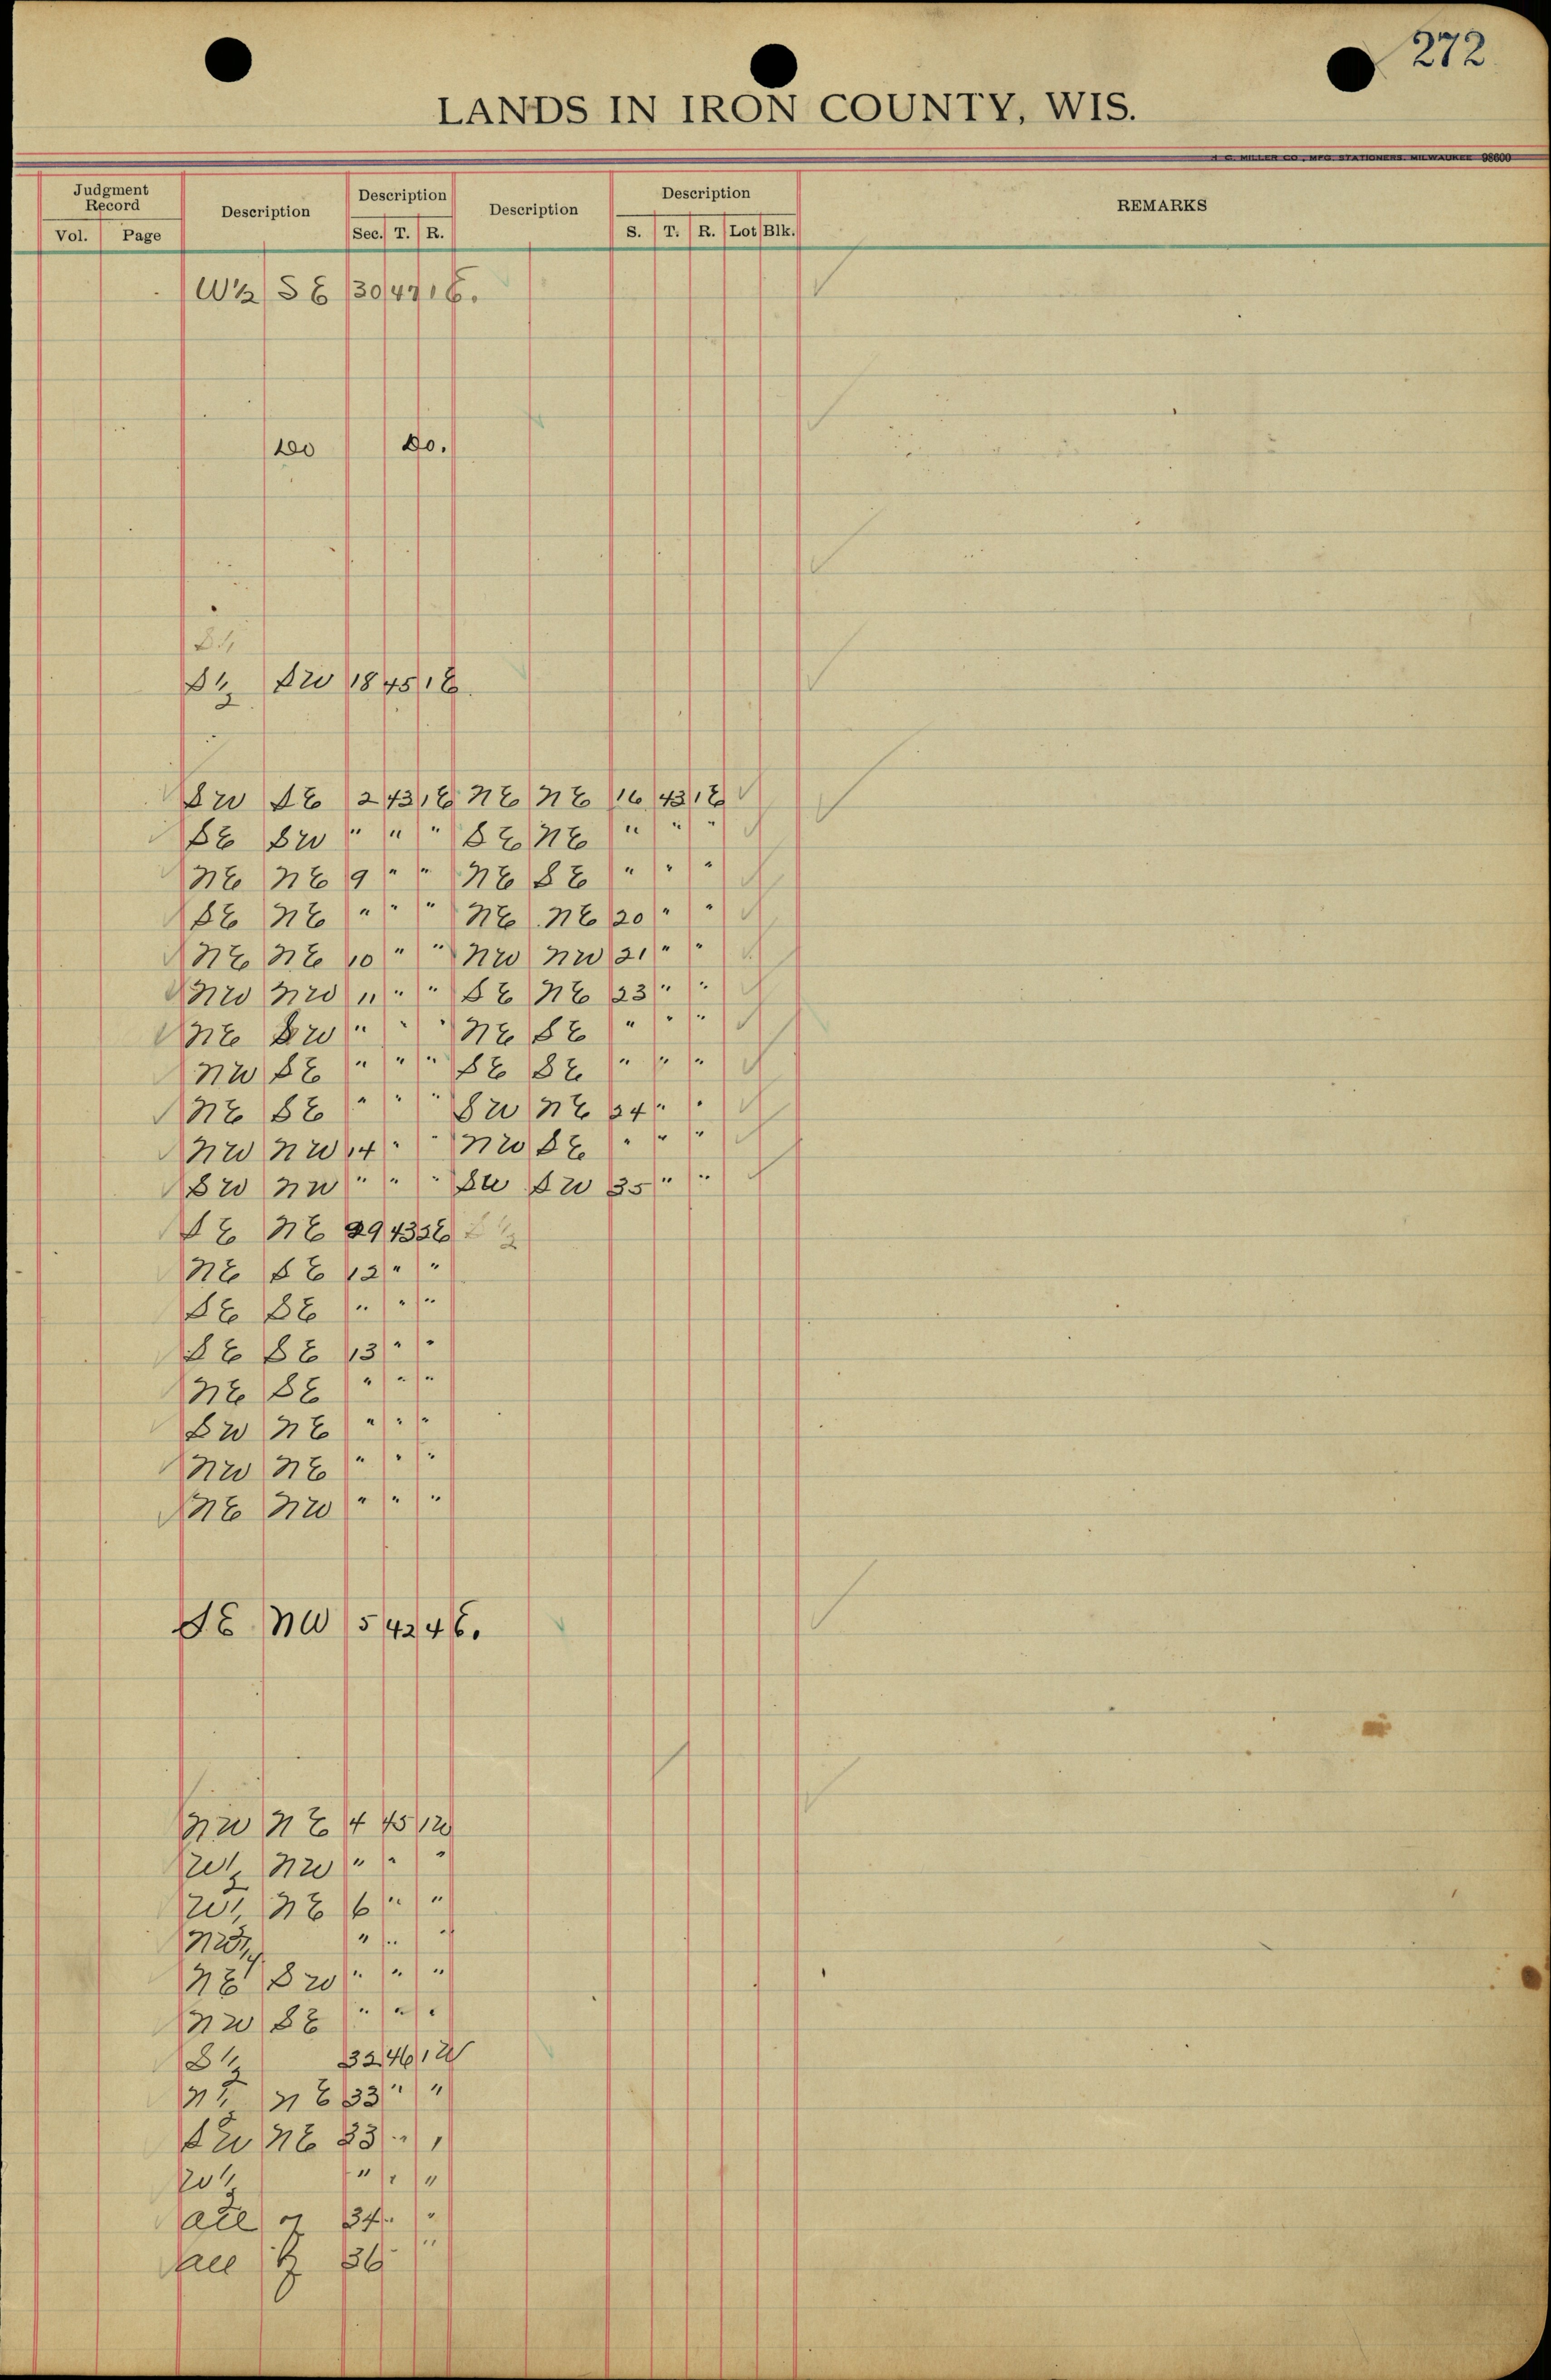 272
LANDS IN IRON COUNTY, WIS.
H. C. MILLER CO., MFG. STATIONERS, MILWAUKEE 98600
Judgment Record Description Description Description Description REMARKS
Vol. Page Sec. T. R. S. T. R. Lot Blk.
W½ S E 30 47 1 E.
Do Do.
S½
S½ SW 18 45 1 E.
SW SE 2 43 1 E NE NE 16 43 1 E
SE SW " " " SE NE " " "
NE NE 9 " " NE SE " " "
SE NE " " " NE NE 20 " "
NE NE 10 " " NW NW 21 " "
NW NW 11 " " SE NE 23 " "
NE SW " " " NE SE " " "
NW SE " " " SE SE " " "
NE SE " " " SW NE 24 " "
NW NW 14 " " NW SE " " "
SW NW " " " SW SW 35 " "
SE NE 29 43 2 E S½
NE SE 12 " "
SE SE " " "
SE SE 13 " "
NE SE " " "
SW NE " " "
NW NE " " "
NE NW " " "
SE NW 5 42 4 E.
NW NE 4 45 1 W
W½ NW " " "
W½ NE 6 " "
NW¼ " " "
NE SW " " "
NW SE " " "
S½ 32 46 1 W
N½ N E 33 " "
SW NE 33 " "
W½ " " "
all of 34 " "
all of 36 " "